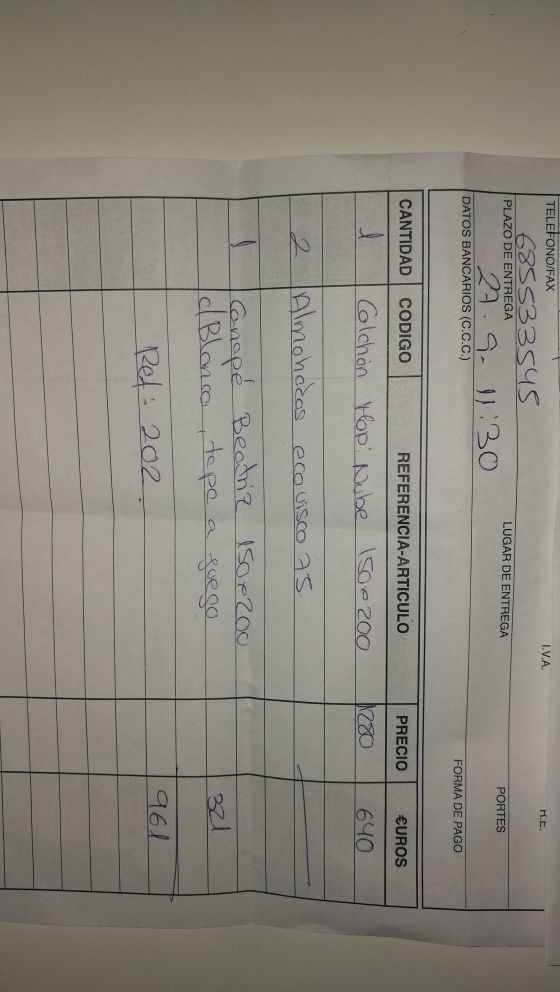 I.V.A. R.E.
TELEFONO/FAX
685533545
PLAZO DE ENTREGA LUGAR DE ENTREGA PORTES
27.9. 11:30
DATOS BANCARIOS (C.C.C.) FORMA DE PAGO
CANTIDAD CODIGO REFERENCIA-ARTICULO PRECIO €UROS
1 Colchón Hapi Nube 150x200 1280 640
2 Almohadas ecovisco 75
1 Canapé Beatriz 150x200
c/Blanco, tapa a juego 321
Ref: 202. 961